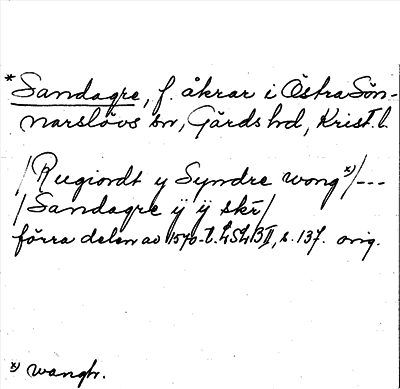 *Sandagre, f. åkrar i Östra Sön-
narslövs sn, Gärds hd, Krist. l.
/Rugiordt y Syndre wong x)/---
/Sandagre ÿ ÿ skr/
förra delen av 1570-t. LSLB II, s. 137. orig.
x) wangh.